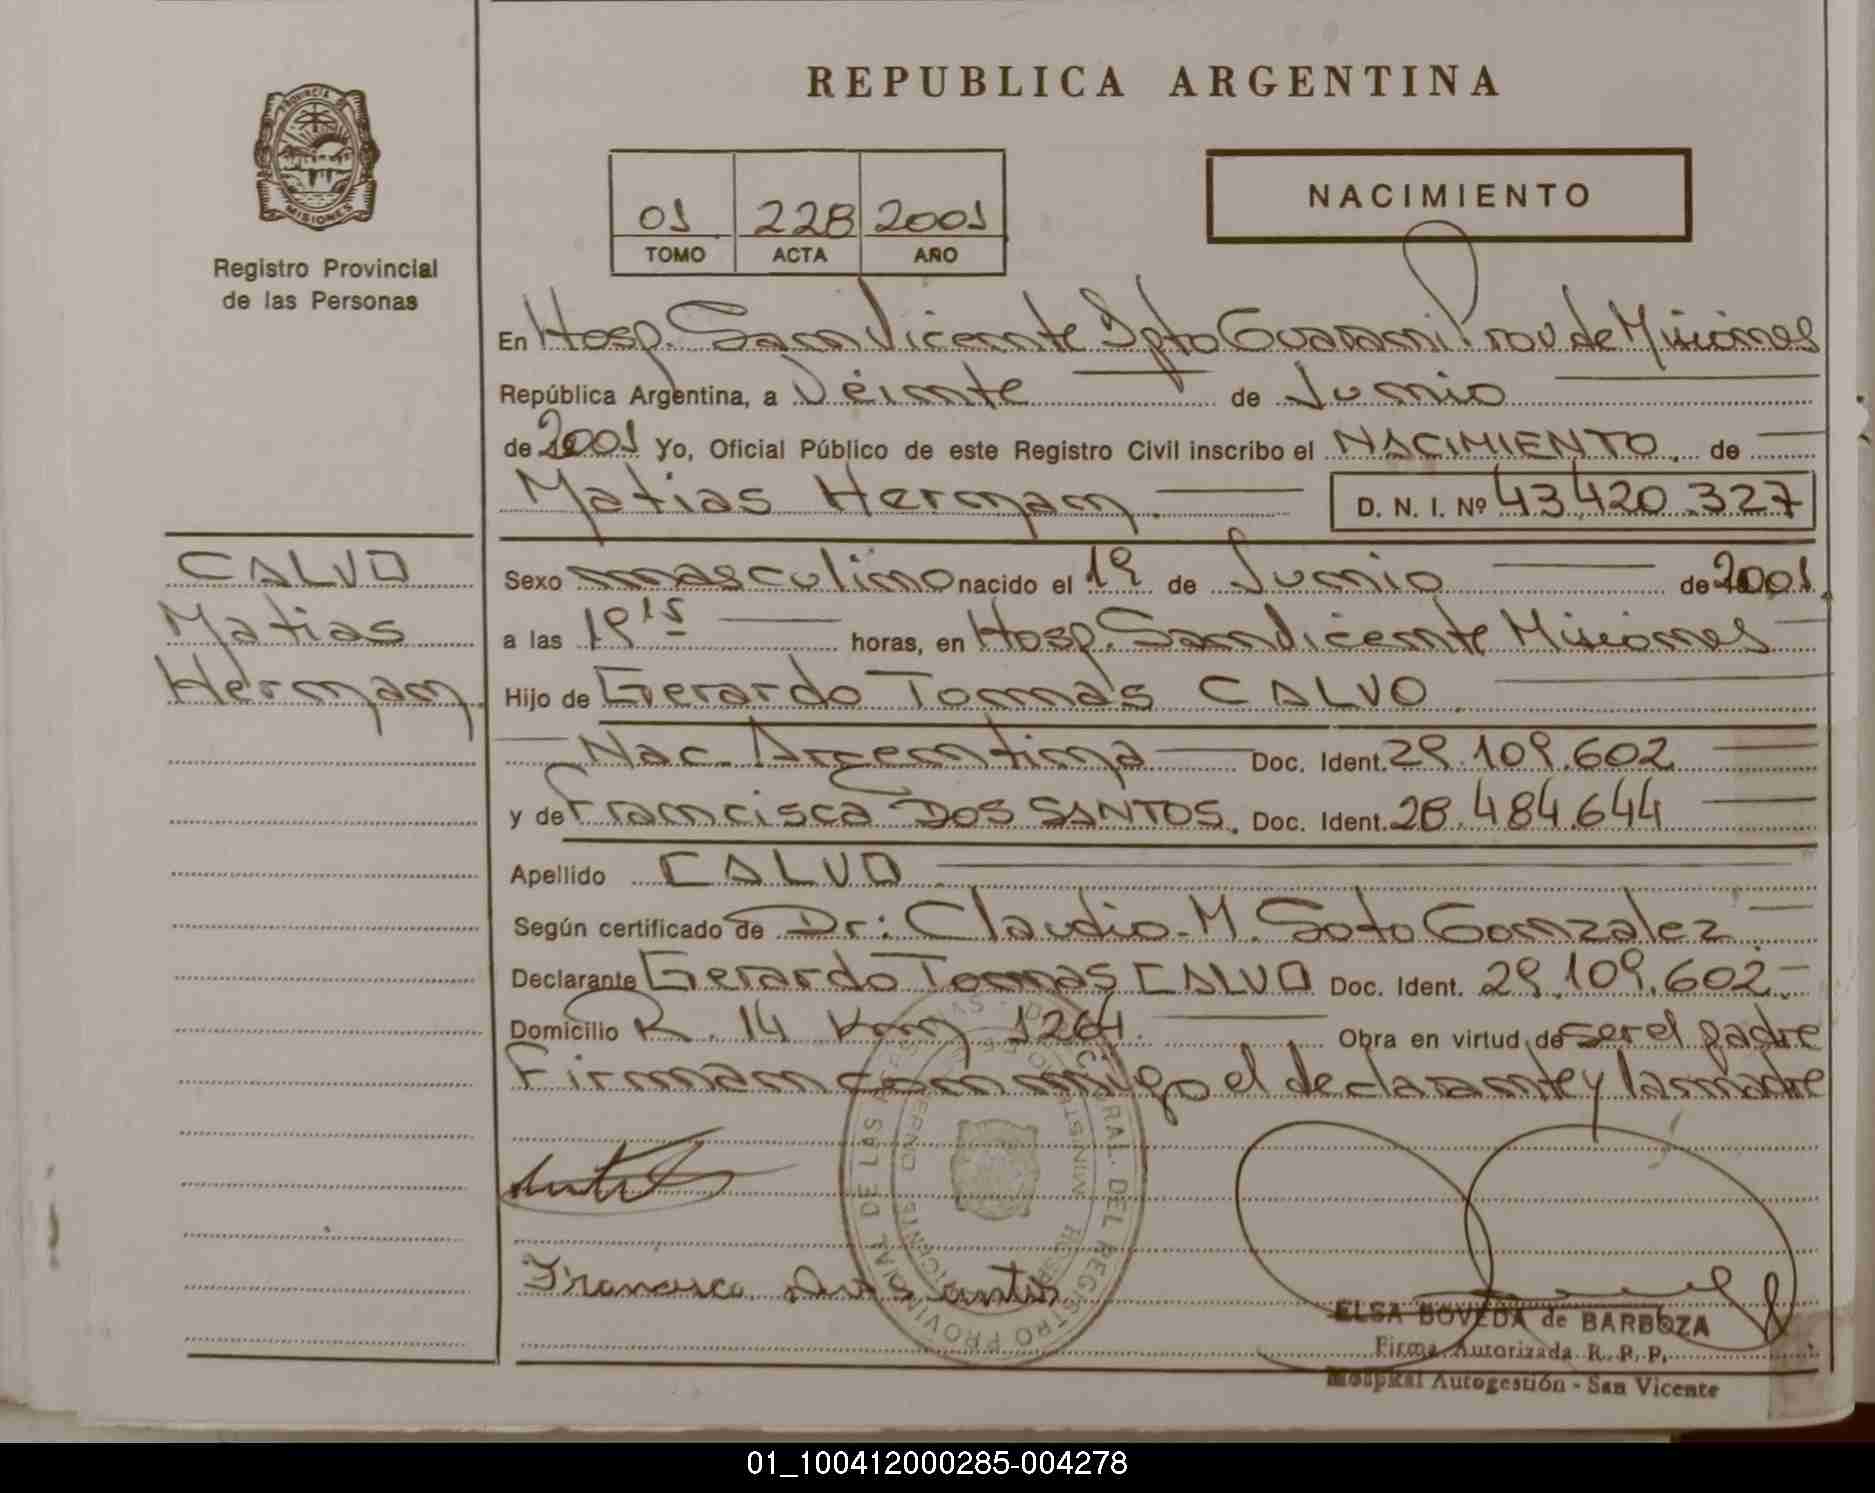 REPUBLICA ARGENTINA
PROVINCIA DE
MISIONES
Registro Provincial
de las Personas
01 228 2001
TOMO ACTA AÑO
NACIMIENTO
En Hosp. San Vicente Dpto Guarani Prov de Misiones
República Argentina, a Veinte de Junio
de 2001 Yo, Oficial Público de este Registro Civil inscribo el NACIMIENTO. de
Matias Hernan. D. N. I. Nº 43.420.327
CALVO
Matias
Hernan.
Sexo masculino nacido el 19 de Junio de 2001.
a las 19 15 horas, en Hosp. San Vicente Misiones
Hijo de Gerardo Tomás CALVO.
Nac. Argentina Doc. Ident. 29.109.602
y de Francisca DOS SANTOS. Doc. Ident. 28.484.644
Apellido CALVO.
Según certificado de Dr: Claudio M. Soto Gonzalez.
Declarante Gerardo Tomas CALVO Doc. Ident. 29.109.602.
Domicilio R. 14 Km 1264. Obra en virtud de ser el padre
Firman conmigo el declarante y la madre
Francisca Dos Santos
ELSA BOVEDA de BARBOZA
Firma Autorizada R. P. P.
Hospital Autogestión - San Vicente
01_100412000285-004278